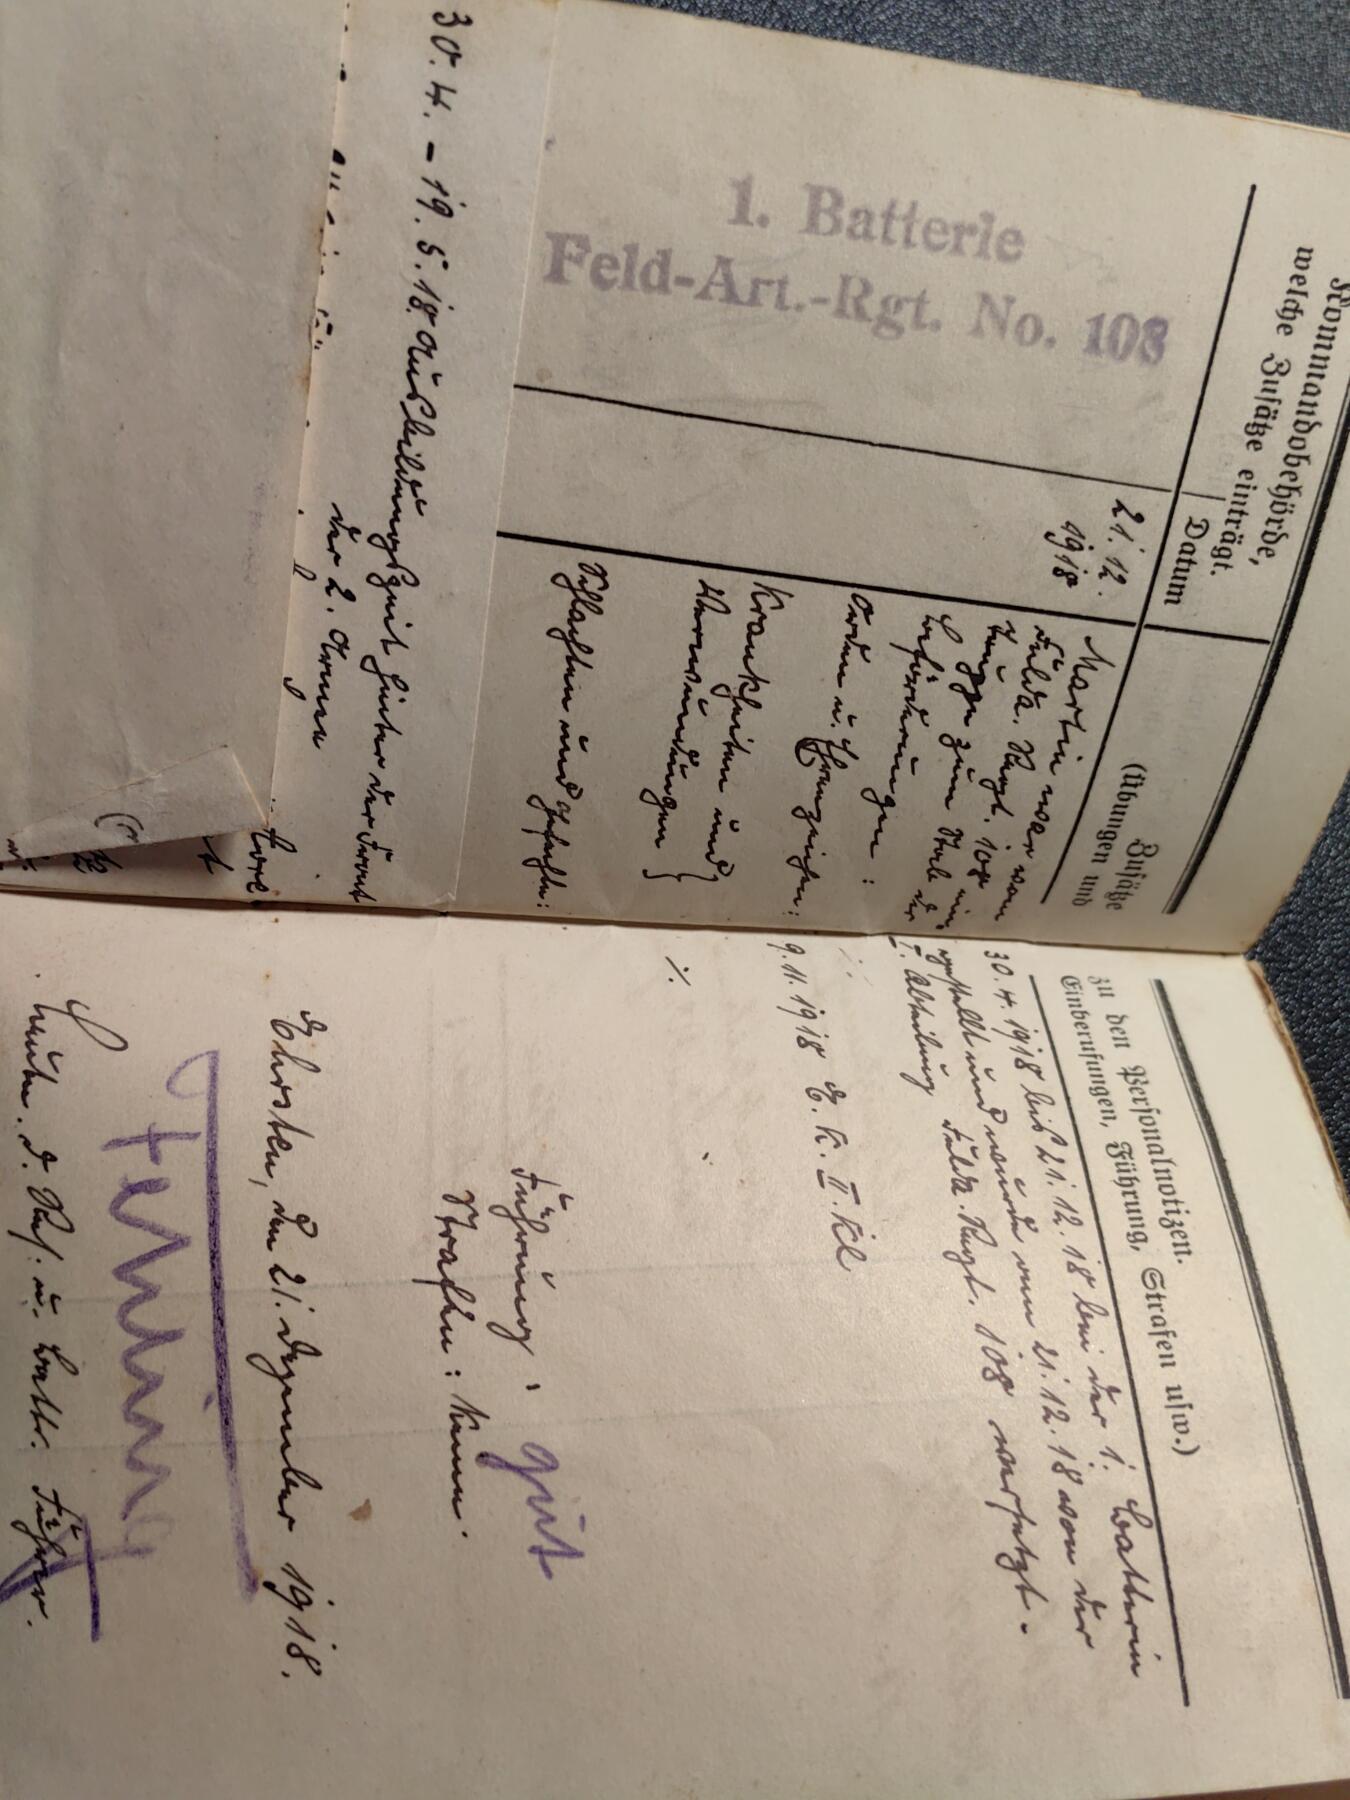 Kommandobehörde,
welche Zusätze einträgt.
Datum
Zusätze
(Übungen und
zu den Personalnotizen.
Einberufungen, Führung, Strafen usw.)
1. Batterie
Feld-Art.-Rgt. No. 108
21. 12.
1918
Martin war vom 30. 4. 1918 bis 21. 12. 18 bei der 1. Batterie
Felda. Regt. 108 ein gestellt und wurde am 21. 12. 18 von der
zum Stabe der I. Abteilung Felda. Regt. 108 versetzt.
Beförderungen:
Orden u. Ehrenzeichen: 9. 11. 1918 E. K. II. Kl
Krankheiten und
Verwundungen } ./.
Schlachten und Gefechte:
30. 4. - 19. 5. 18 Ausbildungszeit hinter der Front
der 2. Armee
Führung: gut
Strafen: Keine.
Ehrsten, den 21. Dezember 1918.
Leutn. d. Res. u. Battr. Führer.